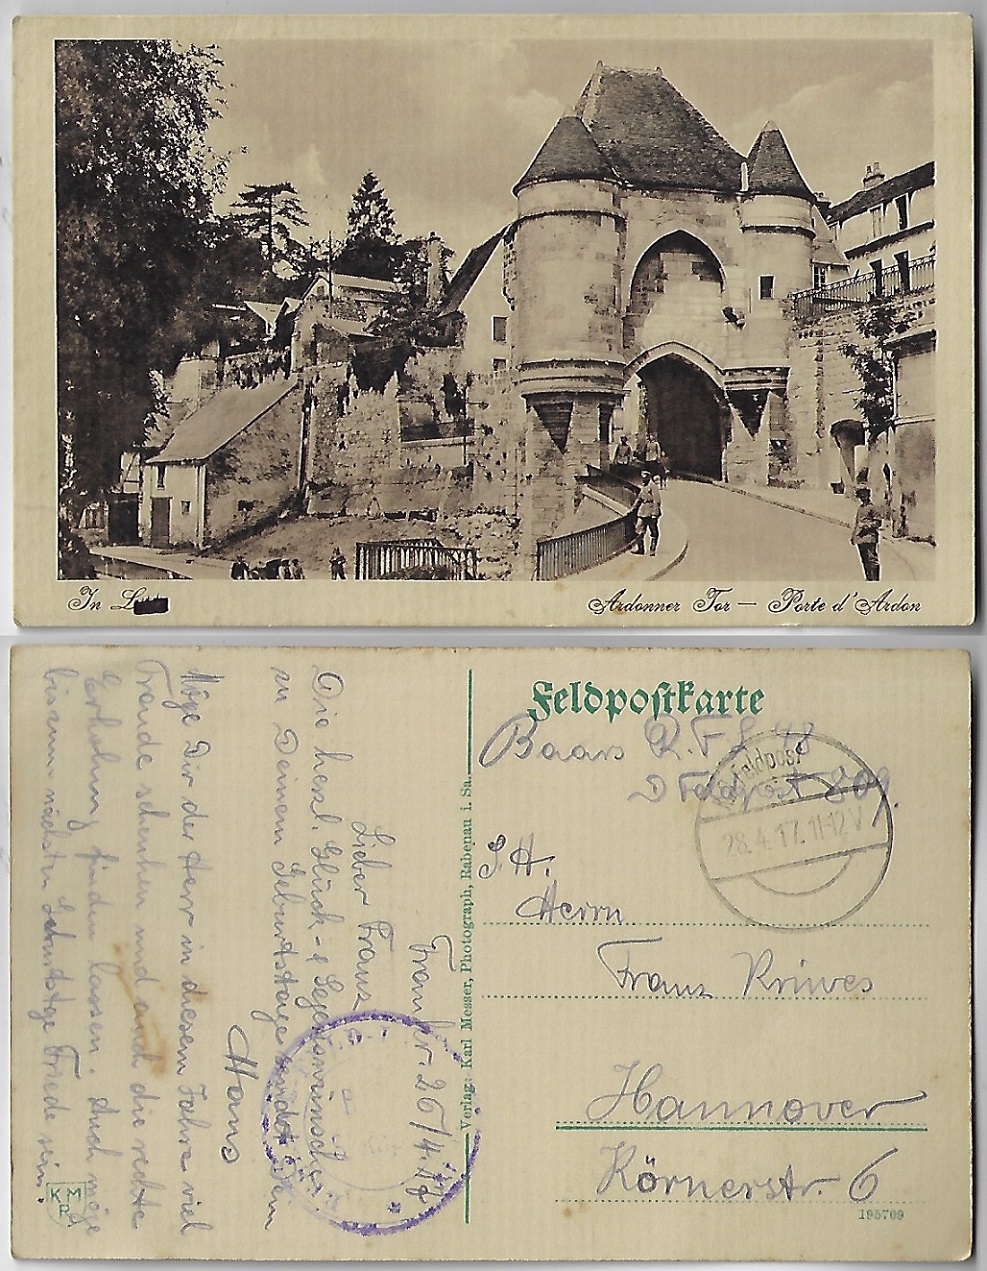 In L
Ardonner Tor — Porte d'Ardon
Feldpostkarte
Baars R.F.L 48
D Feldpost 809.
Feldpost
28.4.17. 11-12 V
S. H.
Herrn
Franz Kriwes
Hannover
Körnerstr. 6
195709
Verlag: Karl Messer, Photograph, Rabenau i. Sa.
Frankr. 26/4.17
Lieber Franz
Die herzl. Glück- & Segenswünsche
zu Deinem Geburtstage sendet Dein
Hans
Möge Dir der Herr in diesem Jahre viel
Freude schenken und auch die rechte
Erholung finden lassen. Auch möge
bis zum nächsten Geburtstage Friede sein.
K M R